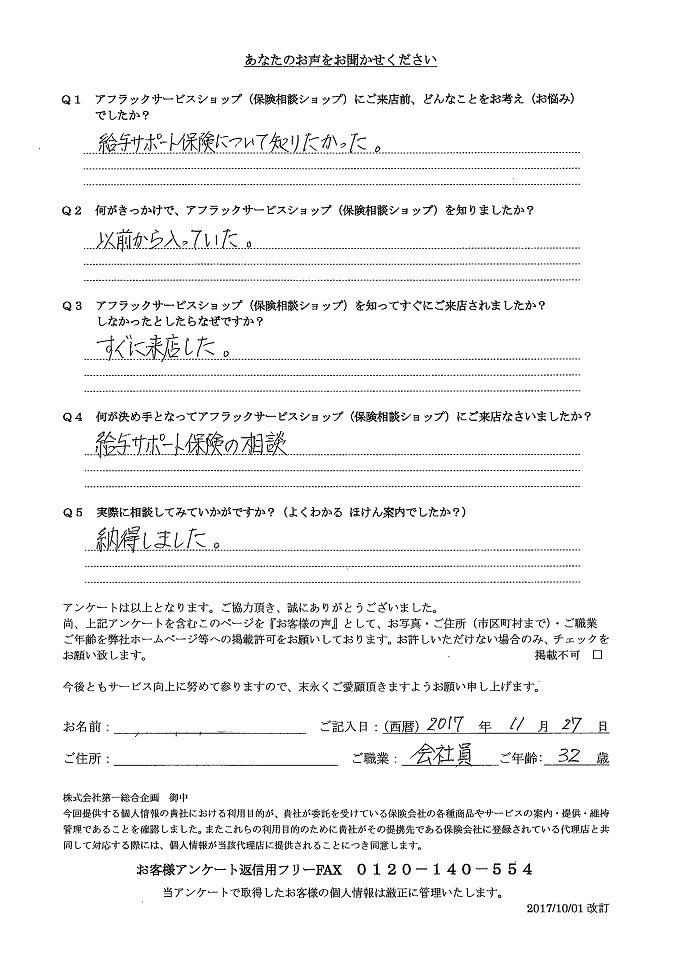 あなたのお声をお聞かせください
Q1 アフラックサービスショップ（保険相談ショップ）にご来店前、どんなことをお考え（お悩み）
でしたか？
給与サポート保険について知りたかった。
Q2 何がきっかけで、アフラックサービスショップ（保険相談ショップ）を知りましたか？
以前から入っていた。
Q3 アフラックサービスショップ（保険相談ショップ）を知ってすぐにご来店されましたか？
しなかったとしたらなぜですか？
すぐに来店した。
Q4 何が決め手となってアフラックサービスショップ（保険相談ショップ）にご来店なさいましたか？
給与サポート保険の相談
Q5 実際に相談してみていかがですか？（よくわかる ほけん案内でしたか？）
納得しました。
アンケートは以上となります。ご協力頂き、誠にありがとうございました。
尚、上記アンケートを含むこのページを『お客様の声』として、お写真・ご住所（市区町村まで）・ご職業
ご年齢を弊社ホームページ等への掲載許可をお願いしております。お許しいただけない場合のみ、チェックを
お願い致します。 掲載不可 □
今後ともサービス向上に努めて参りますので、末永くご愛顧頂きますようお願い申し上げます。
お名前： ご記入日：（西暦） 2017 年 11 月 27 日
ご住所： ご職業： 会社員 ご年齢： 32 歳
株式会社第一総合企画 御中
今回提供する個人情報の貴社における利用目的が、貴社が委託を受けている保険会社の各種商品やサービスの案内・提供・維持
管理であることを確認しました。またこれらの利用目的のために貴社がその提携先である保険会社に登録されている代理店と共
同して対応する際には、個人情報が当該代理店に提供されることにつき同意します。
お客様アンケート返信用フリーFAX 0120－140－554
当アンケートで取得したお客様の個人情報は厳正に管理いたします。
2017/10/01 改訂